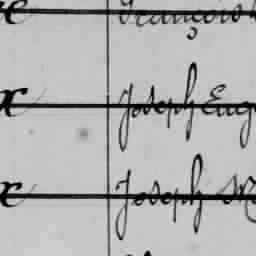 François
Joseph Eug
Joseph M